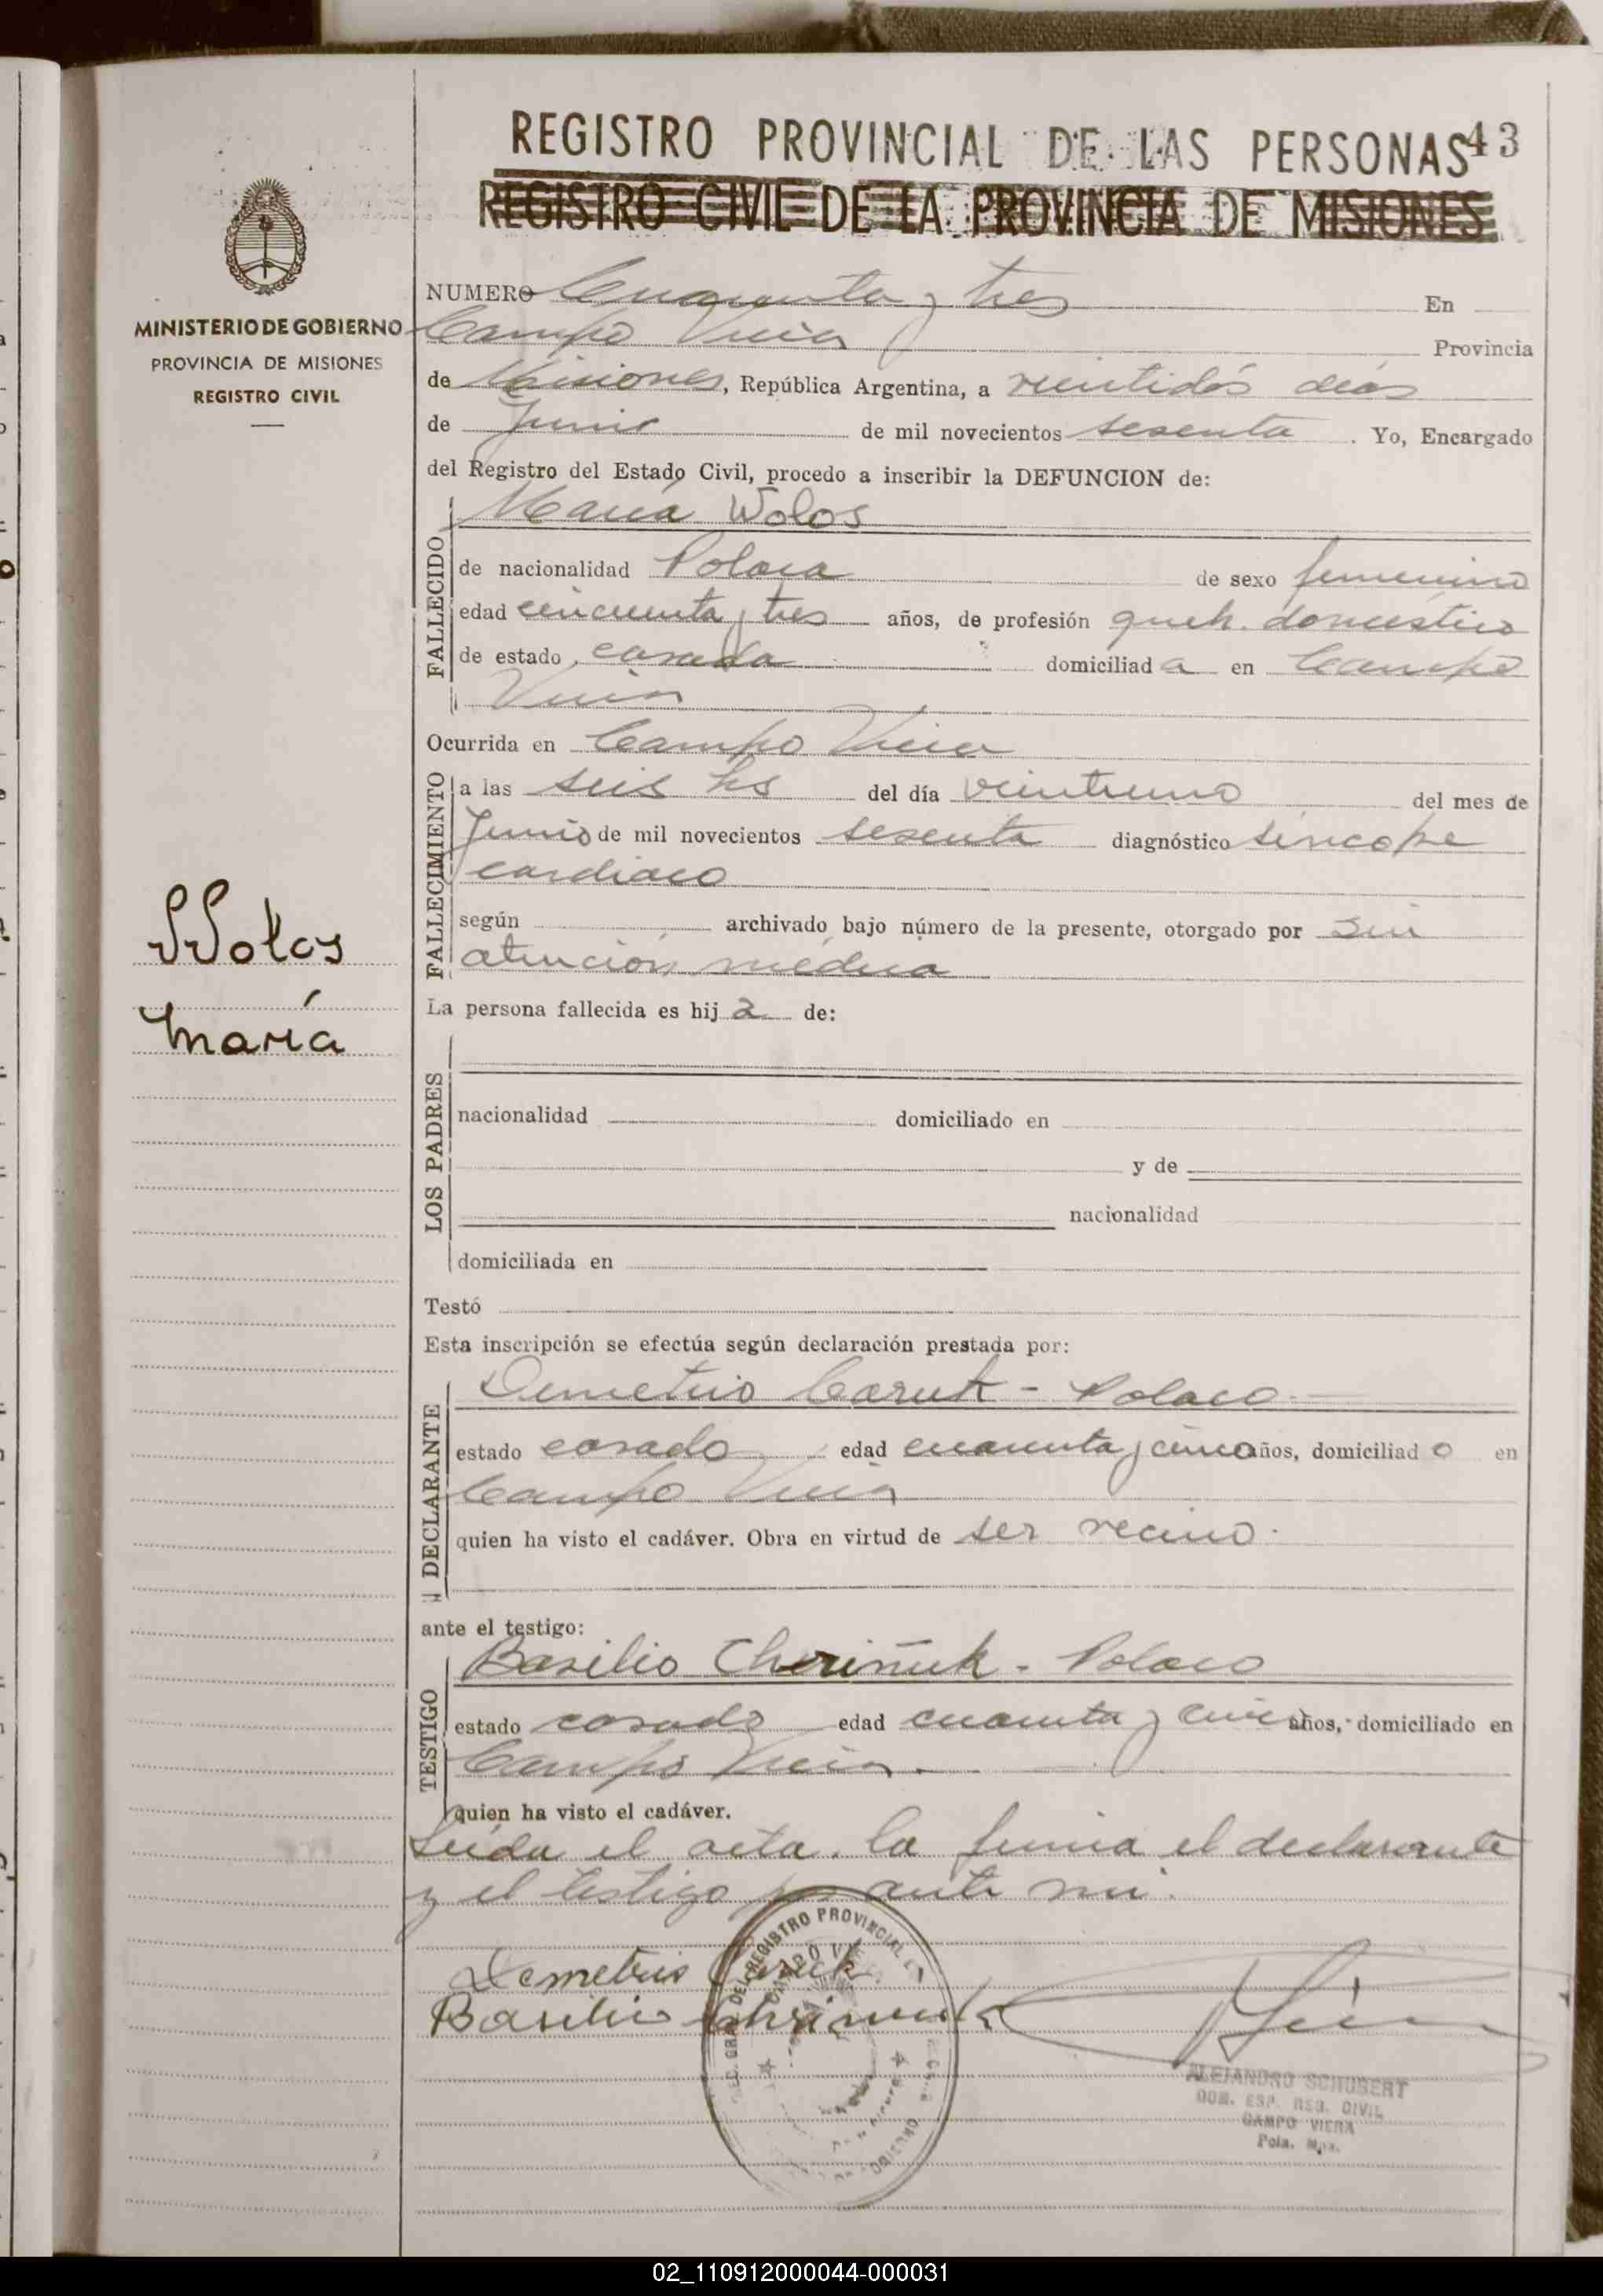 REGISTRO PROVINCIAL DE LAS PERSONAS 43
REGISTRO CIVIL DE LA PROVINCIA DE MISIONES
MINISTERIO DE GOBIERNO
PROVINCIA DE MISIONES
REGISTRO CIVIL
Wolos
María
NUMERO Cuarenta y tres En
Campo Viera Provincia
de Misiones, República Argentina, a veintidós días
de Junio de mil novecientos sesenta. Yo, Encargado
del Registro del Estado Civil, procedo a inscribir la DEFUNCION de:
María Wolos
FALLECIDO
de nacionalidad Polaca de sexo femenino
edad cincuenta y tres años, de profesión queh. doméstico
de estado casada domiciliada en Campo
Viera
Ocurrida en Campo Viera
FALLECIMIENTO
a las seis hs del día veintiuno del mes de
Junio de mil novecientos sesenta diagnóstico síncope
cardiaco
según archivado bajo número de la presente, otorgado por Sin
atención médica
La persona fallecida es hija de:
LOS PADRES
nacionalidad domiciliado en
y de
nacionalidad
domiciliada en
Testó
Esta inscripción se efectúa según declaración prestada por:
DECLARANTE
Demetrio Caruk - Polaco
estado casado edad cuarenta y cinco años, domiciliado en
Campo Viera
quien ha visto el cadáver. Obra en virtud de ser vecino.
ante el testigo:
TESTIGO
Basilio Cheriñuk - Polaco
estado casado edad cuarenta y cinco años, domiciliado en
Campo Viera.
quien ha visto el cadáver.
Leída el acta. la firma el declarante
y el testigo por ante mi.
Demetrio Caruk
Basilio
DEL REGISTRO PROVINCIAL
ALEJANDRO SCHUBERT
REG. CIVIL
CAMPO VIERA
02_110912000044-000031